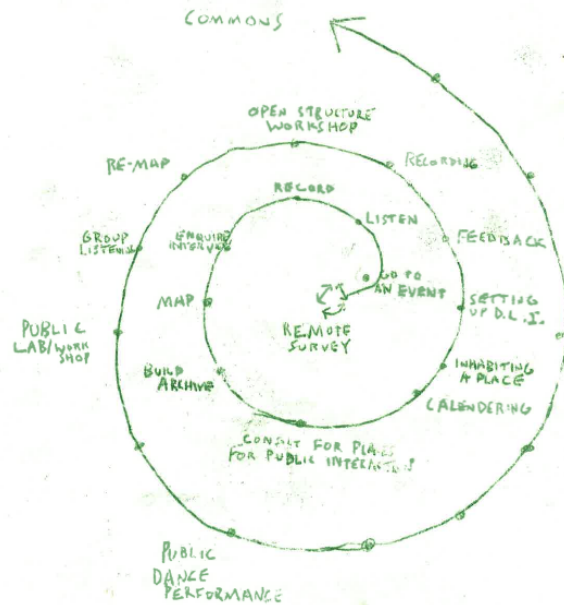 COMMONS
OPEN STRUCTURE
WORKSHOP
RE-MAP
RECORDING
RECORD
LISTEN
GROUP
LISTENING
ENQUIRE
INTERVIEW
FEEDBACK
GO TO
AN EVENT
MAP
SETTING
UP D.L.I.
REMOTE
SURVEY
PUBLIC
LAB/WORK
SHOP
BUILD
ARCHIVE
INHABITING
A PLACE
CALENDERING
CONSULT FOR PLACE
FOR PUBLIC INTERACTION
PUBLIC
DANCE
PERFORMANCE